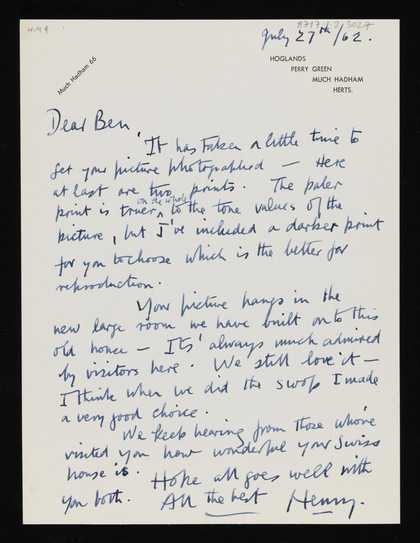 H.M 9
8717/1/2/3027
July 27th/62.
Much Hadham 66
HOGLANDS
PERRY GREEN
MUCH HADHAM
HERTS.
Dear Ben,
It has taken a little time to
get your picture photographed — Here
at last are two prints. The paler
print is truer on the whole to the tone values of the
picture, but I've included a darker print
for you to choose which is the better for
reproduction.
Your picture hangs in the
new large room we have built on to this
old house — It's always much admired
by visitors here. We still love it —
I think when we did the swop I made
a very good choice.
We keep hearing from those who've
visited you how wonderful your Swiss
house is. Hope all goes well with
you both. All the best Henry.